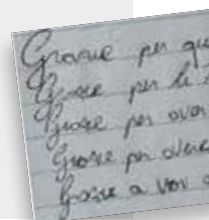 Grazie per que
Grazie per le
Grazie per aver
Grazie per avere
Grazie a voi